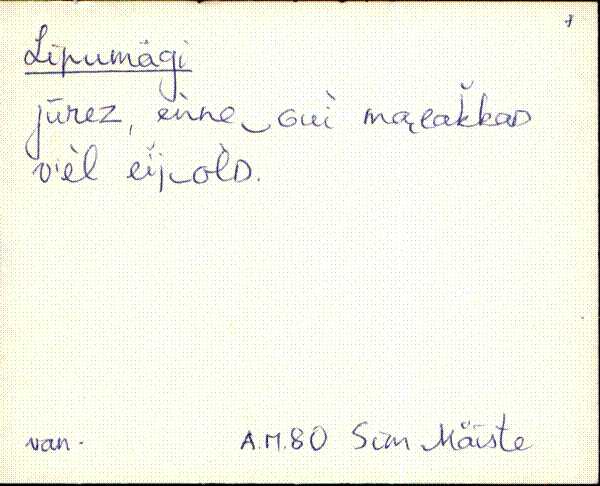 7
Lipumägi
jūrez, eǹne‿ GUÌ mąɛaǩkaD
vièl eij‿olD.
van. A.M.80 Sim Mäiste